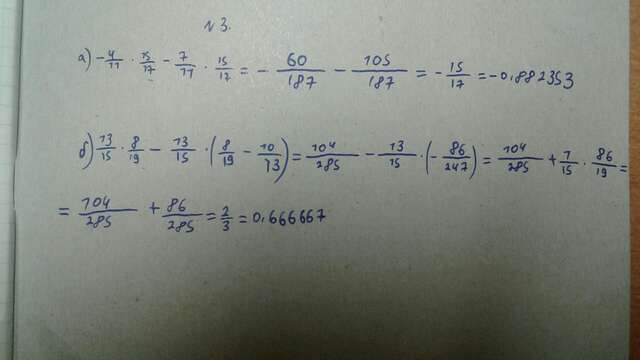 № 3.
а) -4/11 · 15/17 - 7/11 · 15/17 = - 60/187 - 105/187 = - 15/17 = -0,882353
б) 13/15 · 8/19 - 13/15 · (8/19 - 10/13) = 104/285 - 13/15 · (- 86/247) = 104/285 + 1/15 · 86/19 =
= 104/285 + 86/285 = 2/3 = 0,666667